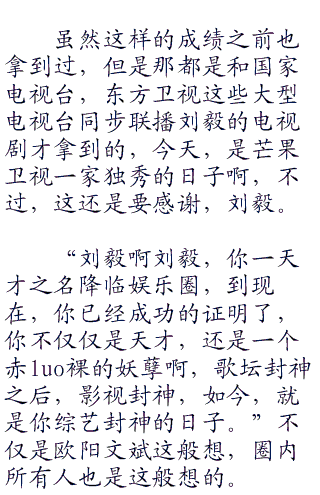 虽然这样的成绩之前也
拿到过，但是那都是和国家
电视台，东方卫视这些大型
电视台同步联播刘毅的电视
剧才拿到的，今天，是芒果
卫视一家独秀的日子啊，不
过，这还是要感谢，刘毅。
“刘毅啊刘毅，你一天
才之名降临娱乐圈，到现
在，你已经成功的证明了，
你不仅仅是天才，还是一个
赤luo裸的妖孽啊，歌坛封神
之后，影视封神，如今，就
是你综艺封神的日子。”不
仅是欧阳文斌这般想，圈内
所有人也是这般想的。